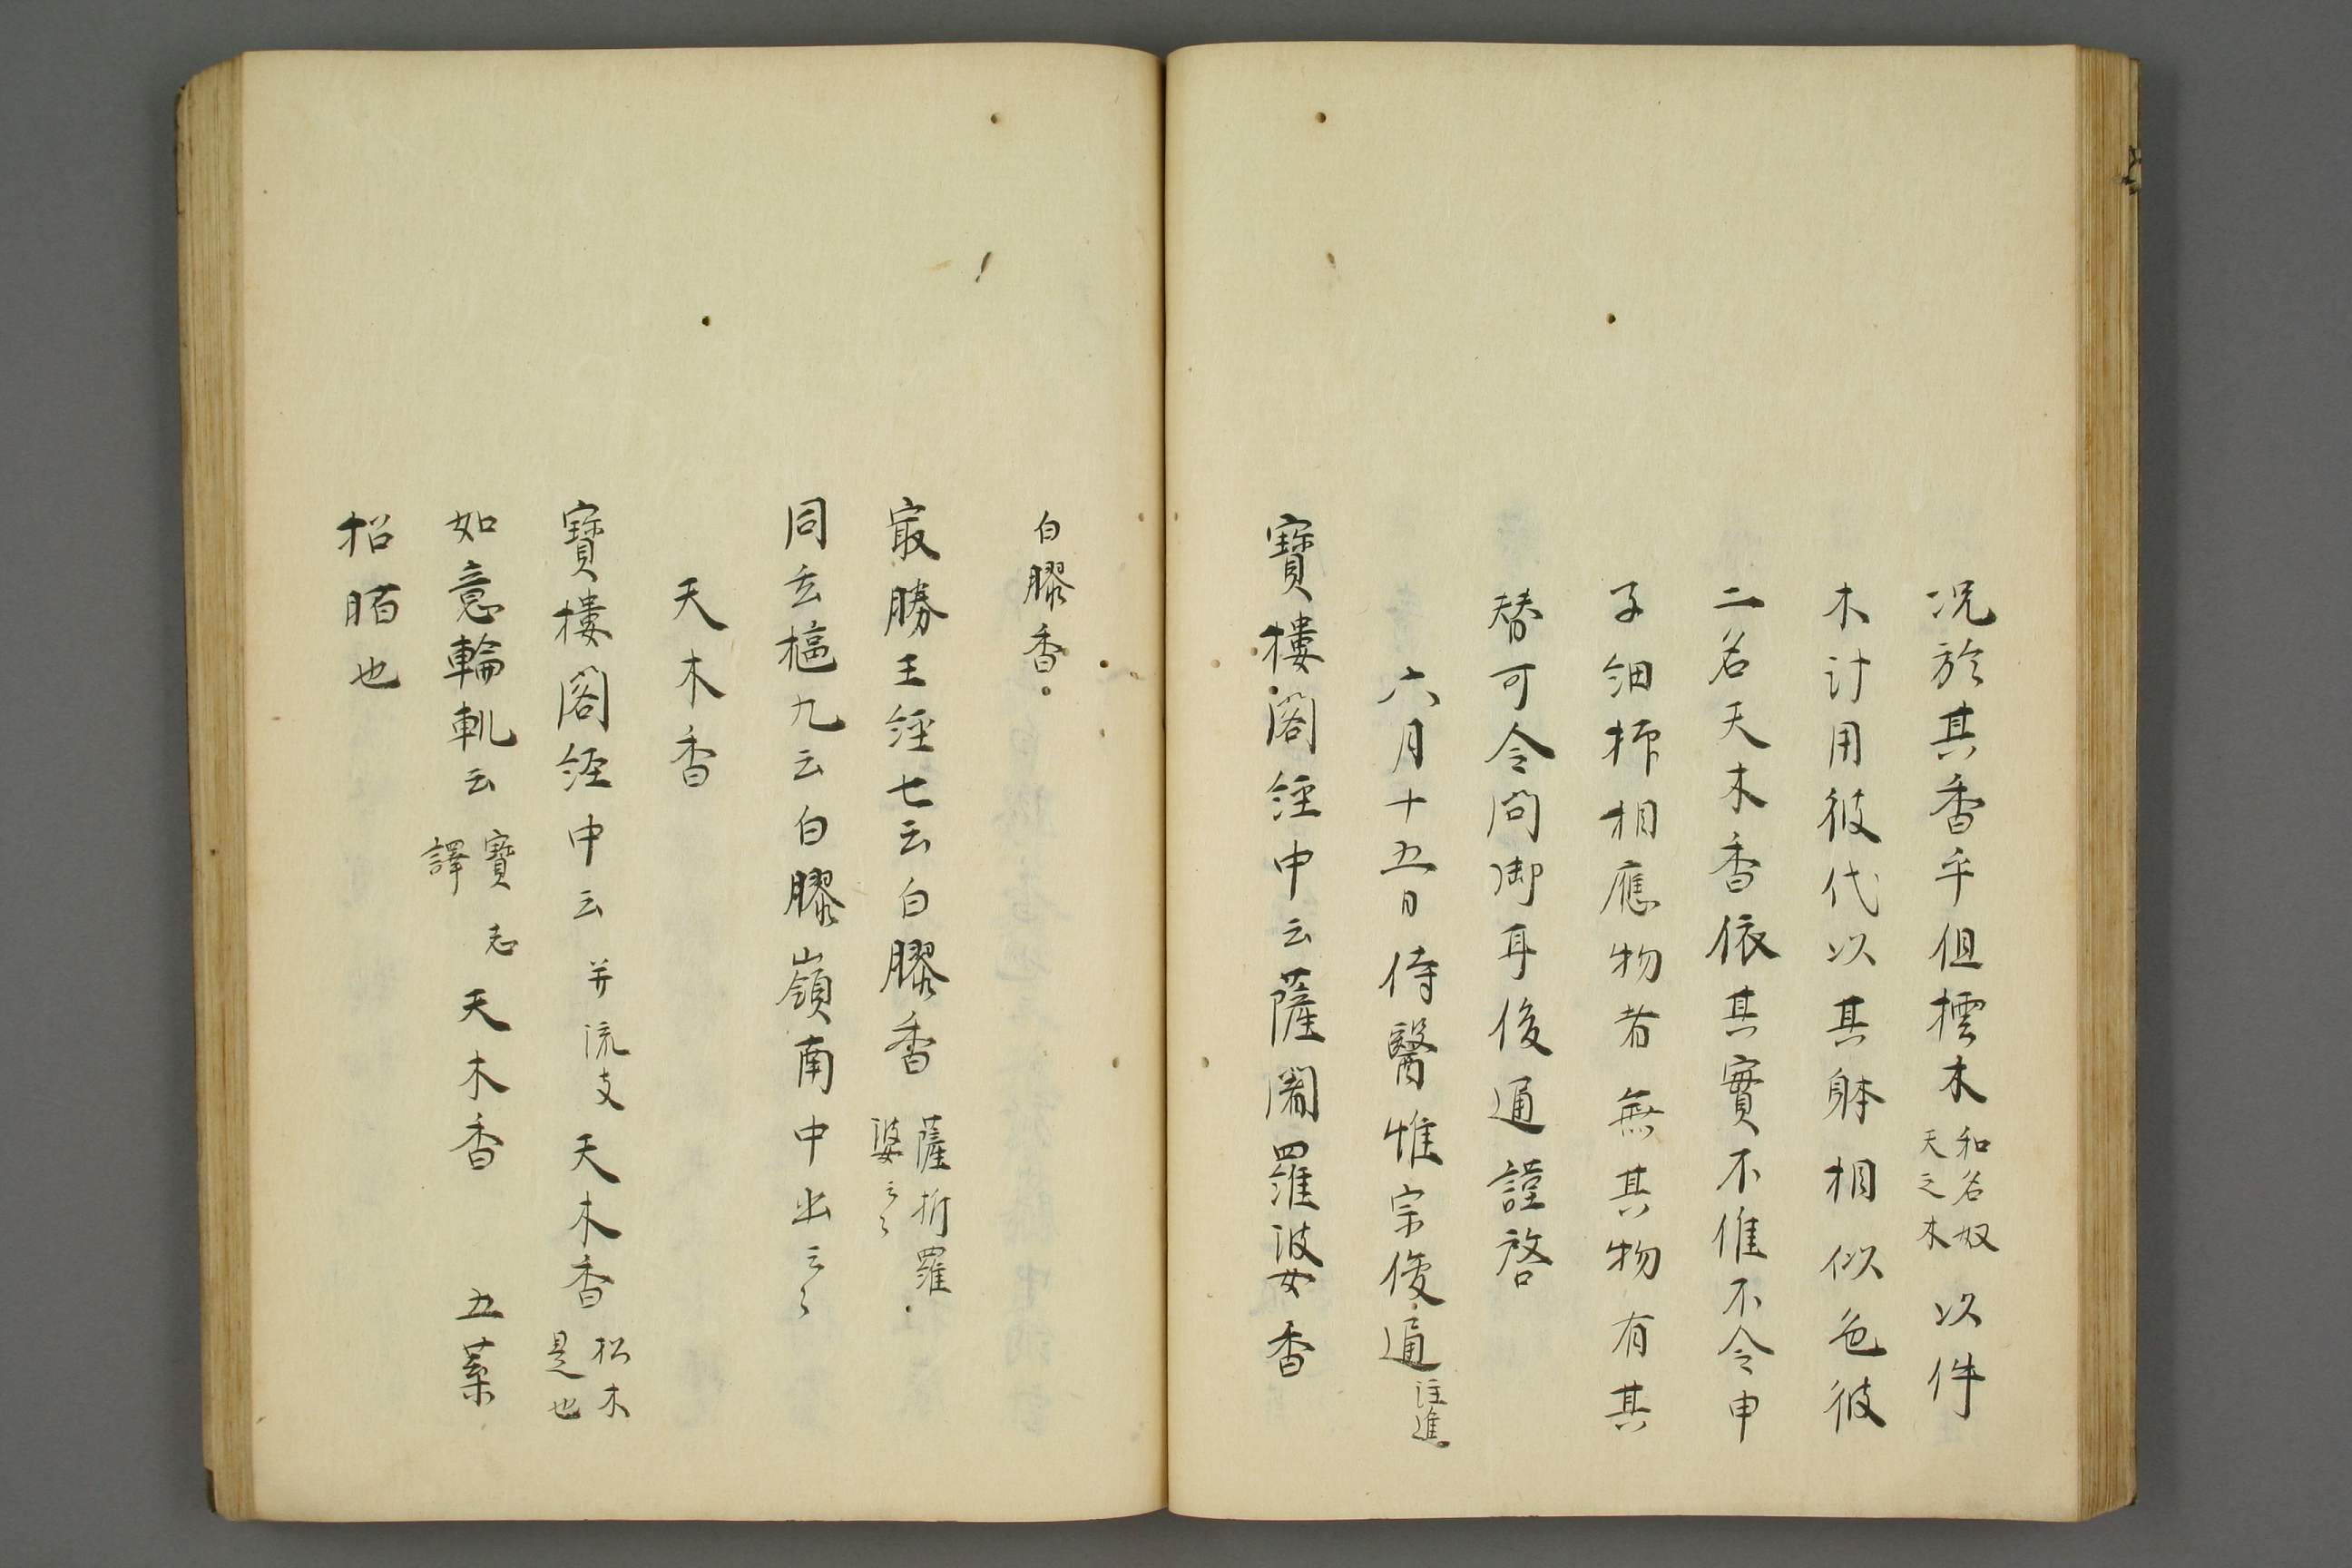 況於其香乎但樰木和名奴天之木以件
木計用彼代以其躰相似色彼
二名天木香依其實不惟不令申
子細抑相應物者無其物有其
替可令問御耳俊通謹啓
六月十五日侍醫惟宗俊通注進
寶樓閣經中云薩闍羅婆香
白膠香
最勝王經七云白膠香薩折羅婆云々
同玄樞九云白膠嶺南中出云々
天木香
寶樓閣經中云并流支天木香松木是也
如意輪軌云寶志譯天木香 五葉
松脂也